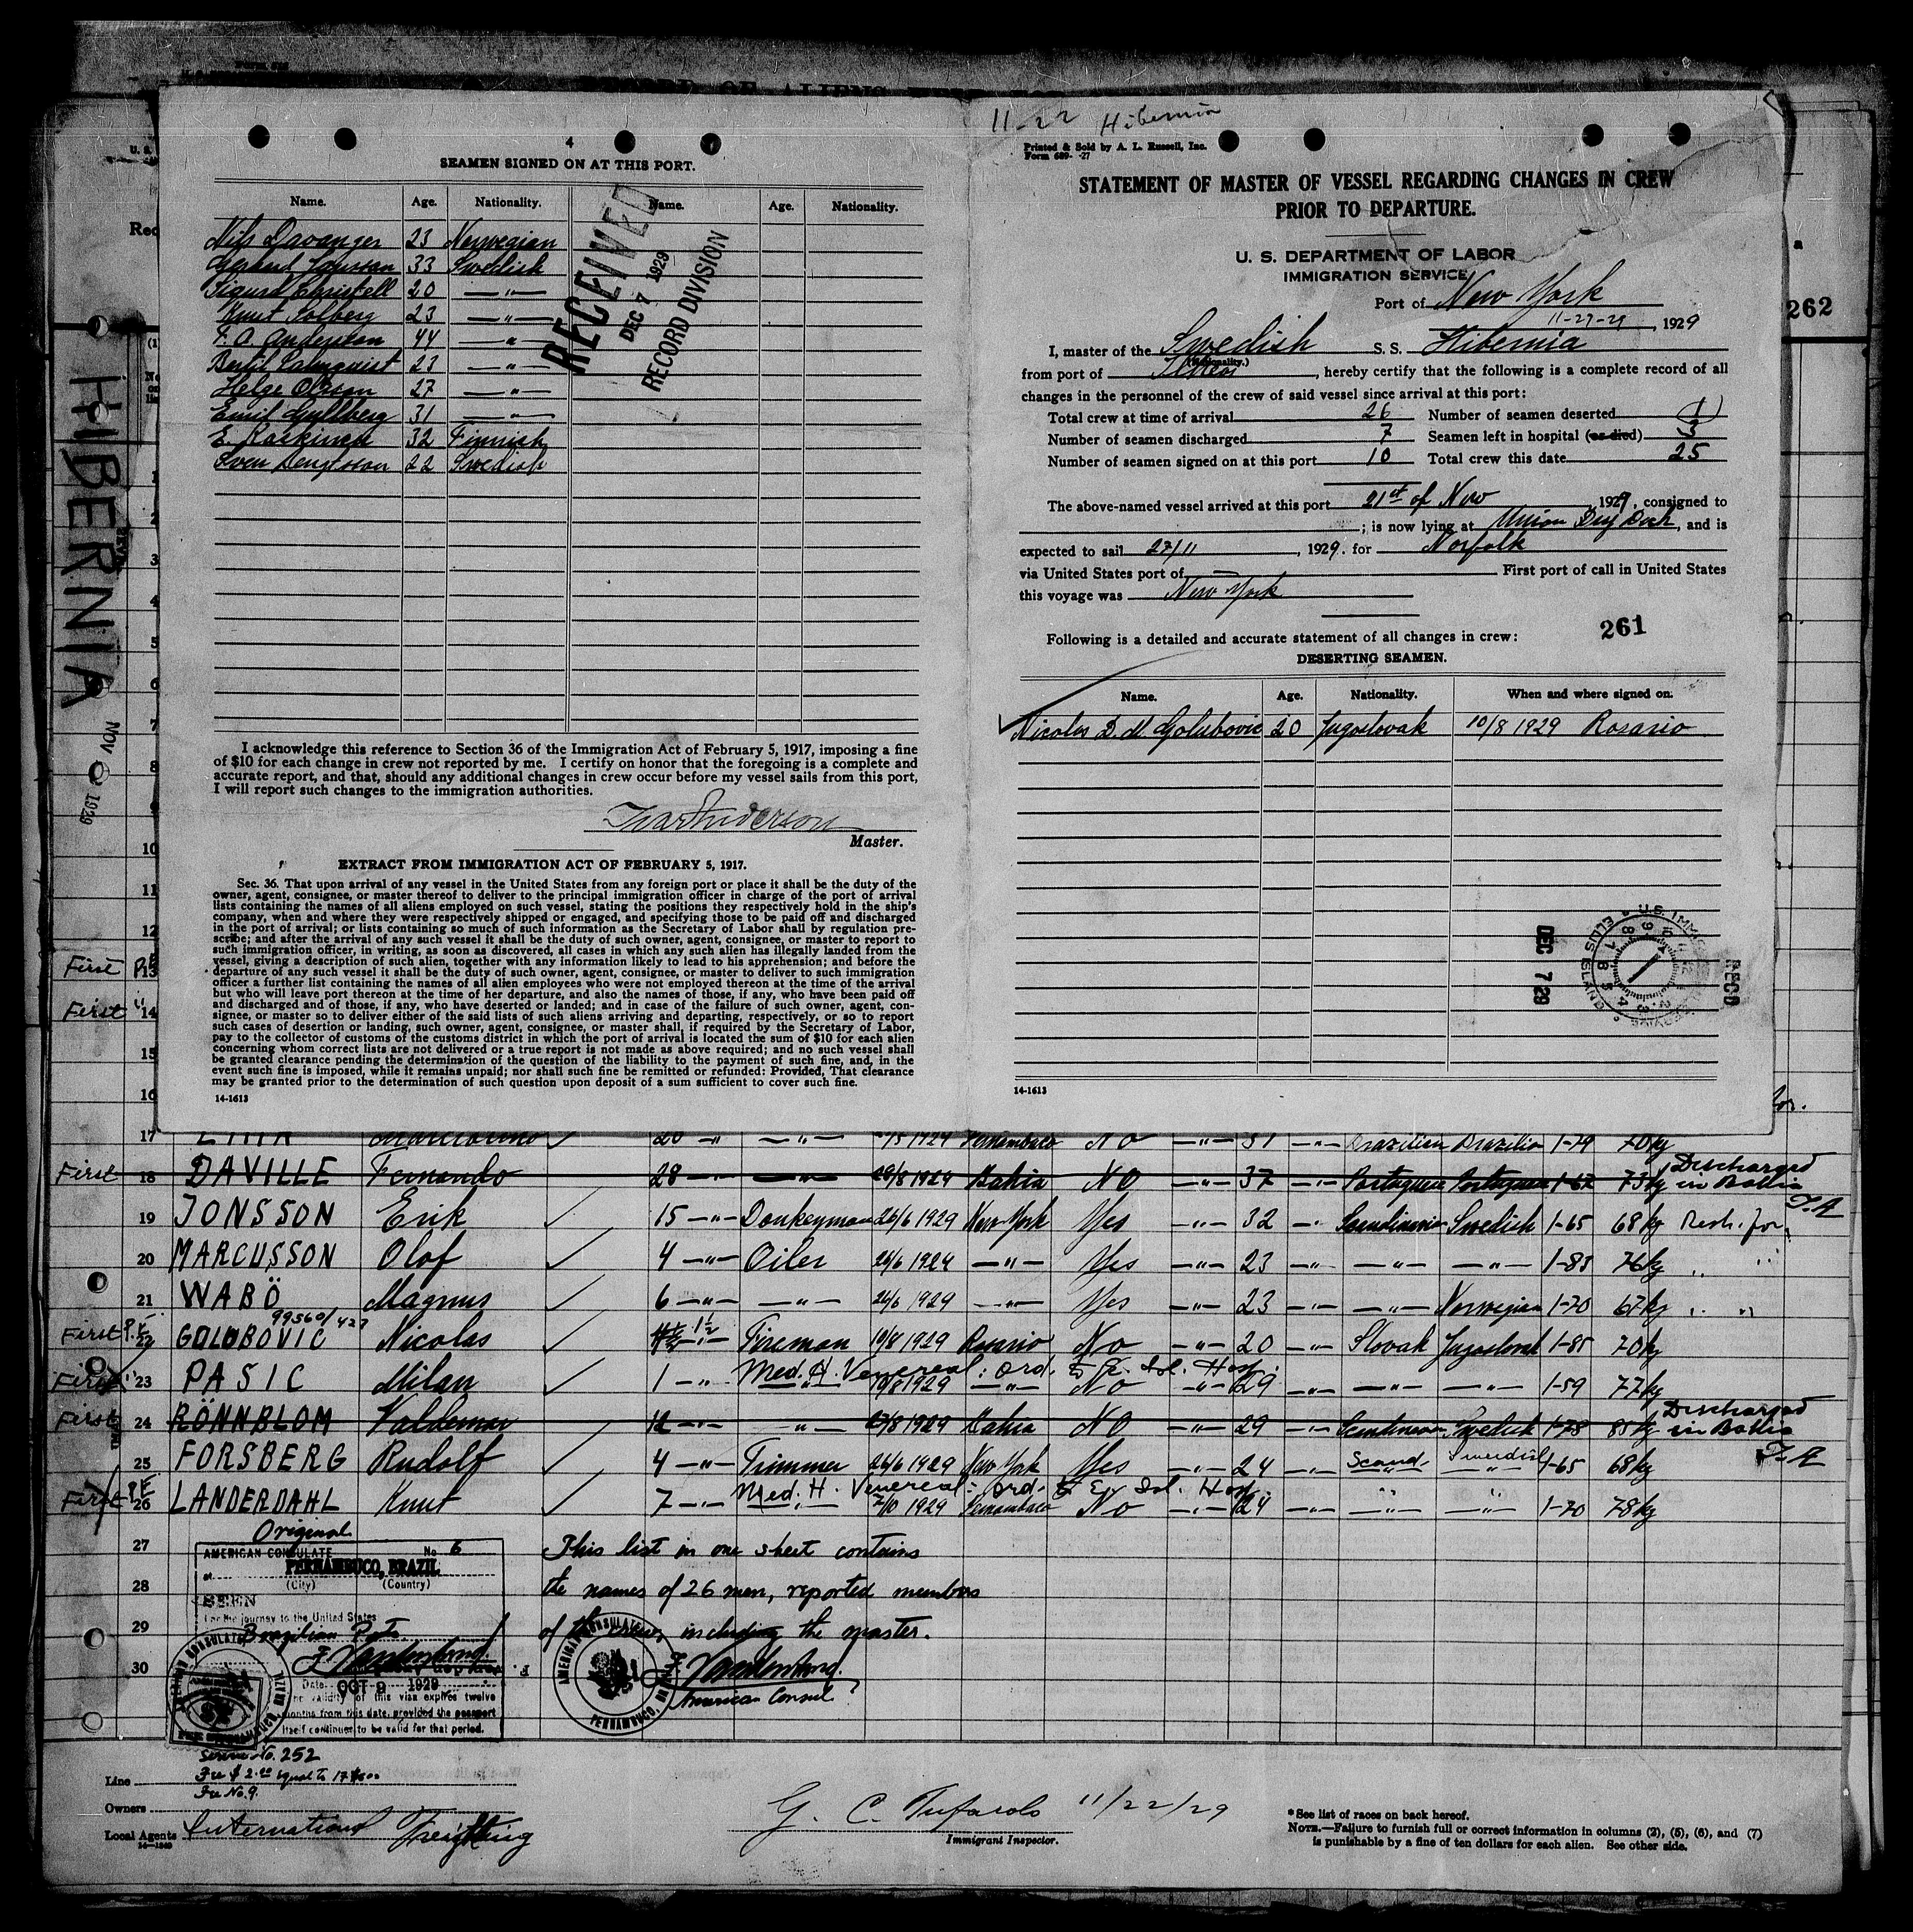 4
SEAMEN SIGNED ON AT THIS PORT.
Name. Age. Nationality. Name. Age. Nationality.
Nils Davanger 23 Norwegian
Gerhard Jonsson 33 Swedish
Sigurd Christell 20 —"—
Knut Solberg 23 —"—
F. A. Anderson 44 —"—
Bertil Palmquist 23 —"—
Helge Olsson 27 —"—
Emil Gyllberg 31 —"—
E. Koskinen 32 Finnish
Sven Bengtsson 22 Swedish
RECEIVED
DEC 7 1929
RECORD DIVISION
I acknowledge this reference to Section 36 of the Immigration Act of February 5, 1917, imposing a fine
of $10 for each change in crew not reported by me. I certify on honor that the foregoing is a complete and
accurate report, and that, should any additional changes in crew occur before my vessel sails from this port,
I will report such changes to the immigration authorities.
Ivar Anderson
Master.
EXTRACT FROM IMMIGRATION ACT OF FEBRUARY 5, 1917.
Sec. 36. That upon arrival of any vessel in the United States from any foreign port or place it shall be the duty of the
owner, agent, consignee, or master thereof to deliver to the principal immigration officer in charge of the port of arrival
lists containing the names of all aliens employed on such vessel, stating the positions they respectively hold in the ship's
company, when and where they were respectively shipped or engaged, and specifying those to be paid off and discharged
in the port of arrival; or lists containing so much of such information as the Secretary of Labor shall by regulation pre-
scribe; and after the arrival of any such vessel it shall be the duty of such owner, agent, consignee, or master to report to
such immigration officer, in writing, as soon as discovered, all cases in which any such alien has illegally landed from the
vessel, giving a description of such alien, together with any information likely to lead to his apprehension; and before the
departure of any such vessel it shall be the duty of such owner, agent, consignee, or master to deliver to such immigration
officer a further list containing the names of all alien employees who were not employed thereon at the time of the arrival
but who will leave port thereon at the time of her departure, and also the names of those, if any, who have been paid off
and discharged and of those, if any, who have deserted or landed; and in case of the failure of such owner, agent, con-
signee, or master so to deliver either of the said lists of such aliens arriving and departing, respectively, or so to report
such cases of desertion or landing, such owner, agent, consignee, or master shall, if required by the Secretary of Labor,
pay to the collector of customs of the customs district in which the port of arrival is located the sum of $10 for each alien
concerning whom correct lists are not delivered or a true report is not made as above required; and no such vessel shall
be granted clearance pending the determination of the question of the liability to the payment of such fine, and, in the
event such fine is imposed, while it remains unpaid; nor shall such fine be remitted or refunded: Provided, That clearance
may be granted prior to the determination of such question upon deposit of a sum sufficient to cover such fine.
14-1613
11-22 Hibernia
Printed & Sold by A. L. Russell, Inc.
Form 689- -27
STATEMENT OF MASTER OF VESSEL REGARDING CHANGES IN CREW
PRIOR TO DEPARTURE.
U. S. DEPARTMENT OF LABOR
IMMIGRATION SERVICE
Port of New York
11-27-29, 1929
I, master of the Swedish S. S. Hibernia
(Nationality.)
from port of , hereby certify that the following is a complete record of all
changes in the personnel of the crew of said vessel since arrival at this port:
Total crew at time of arrival 26 Number of seamen deserted 1
Number of seamen discharged 7 Seamen left in hospital (or died) 3
Number of seamen signed on at this port 10 Total crew this date 25
The above-named vessel arrived at this port 21st of Nov 1929, consigned to
; is now lying at Union Dry Dock, and is
expected to sail 27/11, 1929. for Norfolk
via United States port of — First port of call in United States
this voyage was New York
261
Following is a detailed and accurate statement of all changes in crew:
DESERTING SEAMEN.
Name. Age. Nationality. When and where signed on.
Nicolas D. M. Golubovic 20 Jugoslovak 10/8 1929 Rosario
DEC 7 29
U.S. IMMIG. SERVICE ELLIS ISLAND
REC'D
14-1613
262
HIBERNIA
NOV 1929
1
2
3
4
5
6
7
8
9
10
11
12
First 13
First " 14
15
16
17 20 —"— —"— 1929 Pernambuco No —"— 37 —"— Brazilian Brazilia 1-79 70kg
First 18 DAVILLE Fernando 28 —"— —"— 29/8 1929 Bahia NO —"— 37 —"— Portuguese Portuguese 1-67 73kg Discharged in Bahia
19 JONSSON Erik ✓ 15 —"— Donkeyman 26/6 1929 New York Yes —"— 32 —"— Scandinavia Swedish 1-65 68kg Resh. for.
20 MARCUSSON Olof ✓ 4 —"— Oiler 26/6 1929 —"— Yes —"— 23 —"— —"— —"— 1-83 76kg " "
21 WABÖ Magnus ✓ 6 —"— —"— 26/6 1929 —"— Yes —"— 23 —"— —"— Norwegian 1-70 67kg " "
99560/427
First P.E. 22 GOLOBOVIC Nicolas 1½ —"— Fireman 10/8 1929 Rosario No —"— 20 —"— Slovak Jugoslovak 1-85 70kg
Med. H. Venereal: Ord. to E. Isl. Hosp.
First 23 PASIC Milan 1 —"— —"— 10/8 1929 —"— No —"— 29 —"— —"— —"— 1-59 77kg
First 24 RÖNNBLOM Valdemar 12 —"— —"— 29/8 1929 Bahia NO —"— 29 —"— Scandinavia Swedish 1-78 85kg Discharged in Bahia
25 FORSBERG Rudolf ✓ 4 —"— Trimmer 26/6 1929 New York Yes —"— 24 —"— Scand. Swedish 1-65 68kg
Med. H. Venereal: Ord. to E. Isl. Hosp.
First P.E. 26 LANDERDAHL Knut 7 —"— —"— 7/10 1929 Pernambuco No —"— 24 —"— —"— —"— 1-70 78kg
27
28
29
30
Original
AMERICAN CONSULATE No 6
at PERNAMBUCO, BRAZIL
(City) (Country)
SEEN
For the journey to the United States
Brazilian Ports.
Date OCT 9 1929
The validity of this visa expires twelve
months from this date, provided the passport
itself continues to be valid for that period.
AMERICAN CONSULATE PERNAMBUCO, BRAZIL
Service No. 252
Fee $2.00 equal to 17$000
Fee No. 9.
This list in one sheet contains
the names of 26 men, reported members
of the crew, including the master.
American Consul
AMERICAN CONSULATE PERNAMBUCO, BRAZIL
Line
Owners
Local Agents International Freighting
14—1240
G. C. Tufarolo 11/22/29
Immigrant Inspector.
*See list of races on back hereof.
NOTE.—Failure to furnish full or correct information in columns (2), (5), (6), and (7)
is punishable by a fine of ten dollars for each alien. See other side.